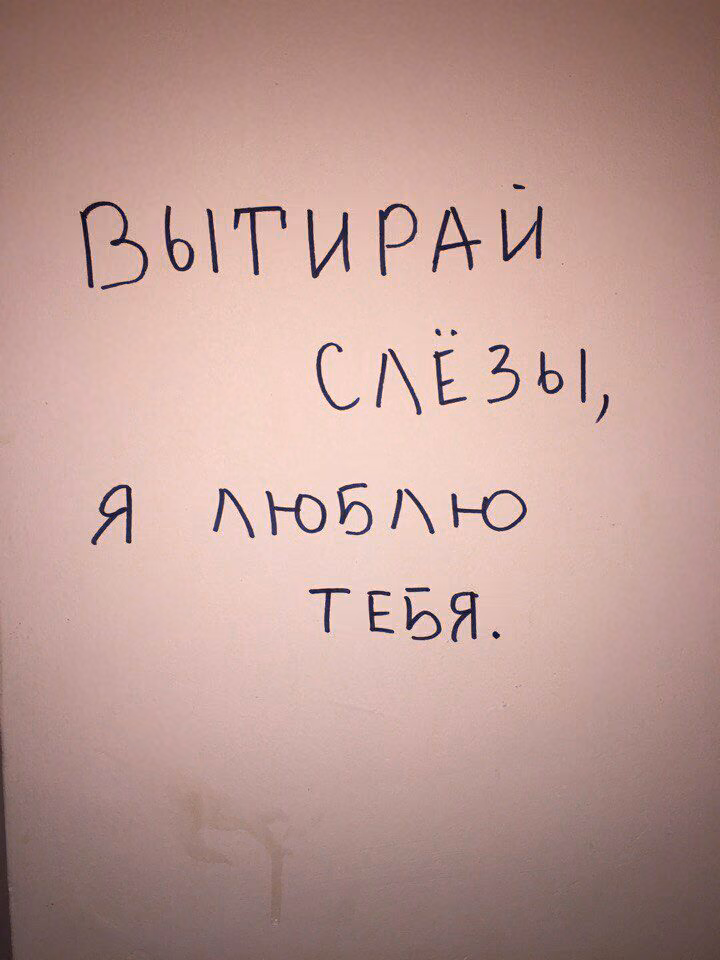 ВЫТИРАЙ
СЛЁЗЫ,
Я ЛЮБЛЮ
ТЕБЯ.